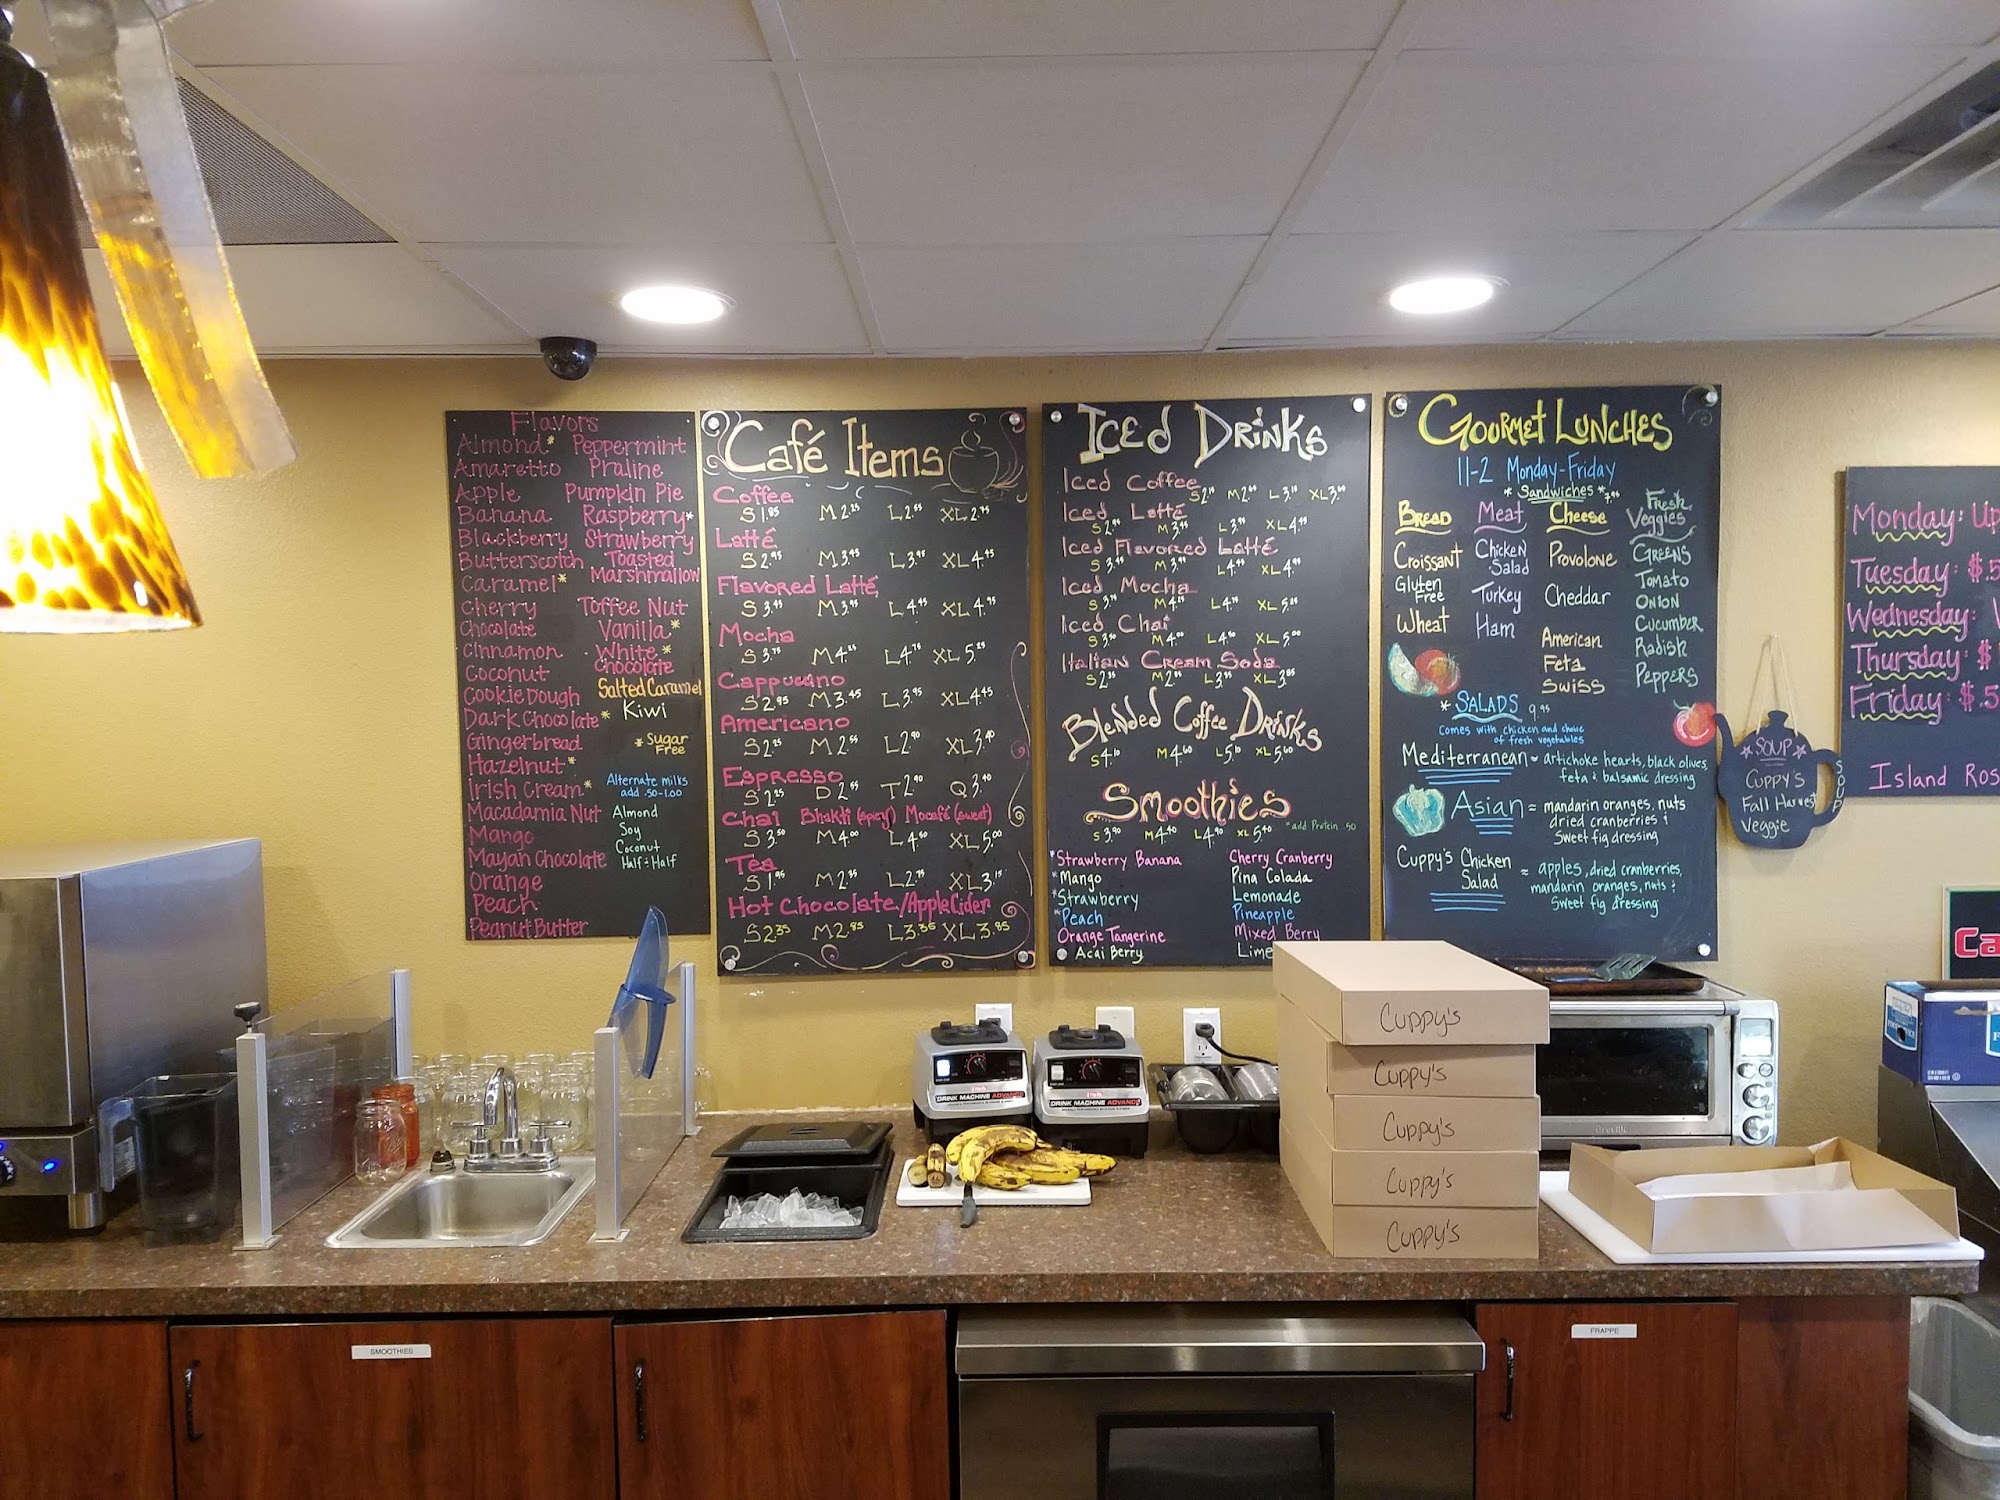 Flavors
Almond* Peppermint
Amaretto Praline
Apple Pumpkin Pie
Banana Raspberry*
Blackberry Strawberry
Butterscotch Toasted Marshmallow
Caramel*
Cherry Toffee Nut
Chocolate Vanilla*
Cinnamon White* Chocolate
Coconut
Cookie Dough Salted Caramel
Dark Chocolate* Kiwi
Gingerbread
Hazelnut*
Irish Cream*
Macadamia Nut
Mango
Mayan Chocolate
Orange
Peach
Peanut Butter
* Sugar Free
Alternate milks
add .50-1.00
Almond
Soy
Coconut
Half & Half
Café Items
Coffee
S 1.95 M 2.25 L 2.55 XL 2.75
Latté
S 2.95 M 3.45 L 3.95 XL 4.45
Flavored Latté
S 3.45 M 3.95 L 4.45 XL 4.95
Mocha
S 3.75 M 4.25 L 4.75 XL 5.25
Cappucino
S 2.95 M 3.45 L 3.95 XL 4.45
Americano
S 2.25 M 2.55 L 2.90 XL 3.40
Espresso
S 2.25 D 2.55 T 2.90 Q 3.40
Chai Bhakti (spicy) Mocafé (sweet)
S 3.50 M 4.00 L 4.50 XL 5.00
Tea
S 1.95 M 2.35 L 2.75 XL 3.15
Hot Chocolate/Apple Cider
S 2.35 M 2.85 L 3.35 XL 3.85
Iced Drinks
Iced Coffee
S 2. M 2. L 3. XL 3.
Iced Latté
S 2. M 3. L 3. XL 4.
Iced Flavored Latté
S 3. M 3. L 4. XL 4.
Iced Mocha
S 3. M 4. L 4. XL 5.
Iced Chai
S 3.50 M 4.00 L 4.50 XL 5.00
Italian Cream Soda
S 2.35 M 2.85 L 3.35 XL 3.85
Blended Coffee Drinks
S 4.10 M 4.60 L 5.10 XL 5.60
Smoothies
S 3.90 M 4.40 L 4.90 XL 5.40 *add Protein .50
*Strawberry Banana Cherry Cranberry
*Mango Pina Colada
*Strawberry Lemonade
*Peach Pineapple
Orange Tangerine Mixed Berry
Acai Berry Lime
Gourmet Lunches
11-2 Monday-Friday
* Sandwiches * 7.95
Bread Meat Cheese Fresh Veggies
Croissant Chicken Salad Provolone Greens
Gluten Free Turkey Cheddar Tomato
Wheat Ham American Onion
Feta Cucumber
Swiss Radish
Peppers
* Salads 9.95
Comes with chicken and choice
of fresh vegetables
Mediterranean ~ artichoke hearts, black olives,
feta & balsamic dressing
Asian = mandarin oranges, nuts
dried cranberries &
Sweet fig dressing
Cuppy's Chicken Salad ≈ apples, dried cranberries,
mandarin oranges, nuts &
Sweet fig dressing
SOUP
Cuppy's
Fall Harvest
Veggie
SOUP
Monday: Up
Tuesday: $.5
Wednesday:
Thursday: $
Friday: $.5
Island Ros
Ca
DRINK MACHINE ADVANCE
DRINK MACHINE ADVANCE
Cuppy's
Cuppy's
Cuppy's
Cuppy's
Cuppy's
Breville
SMOOTHIES
FRAPPE